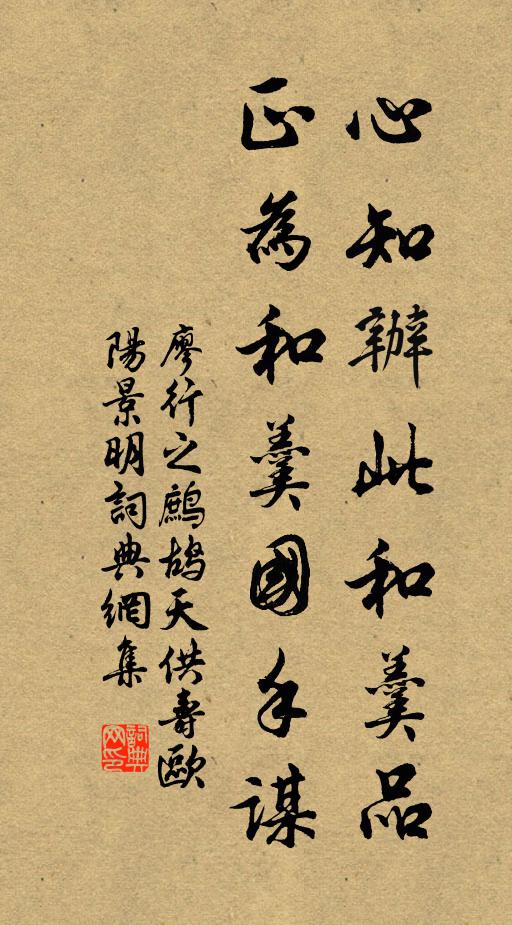 心知辦此和羹品
正為和羹國手謀
廖行之鷓鴣天供壽歐
陽景明詞典網集
詞典網印